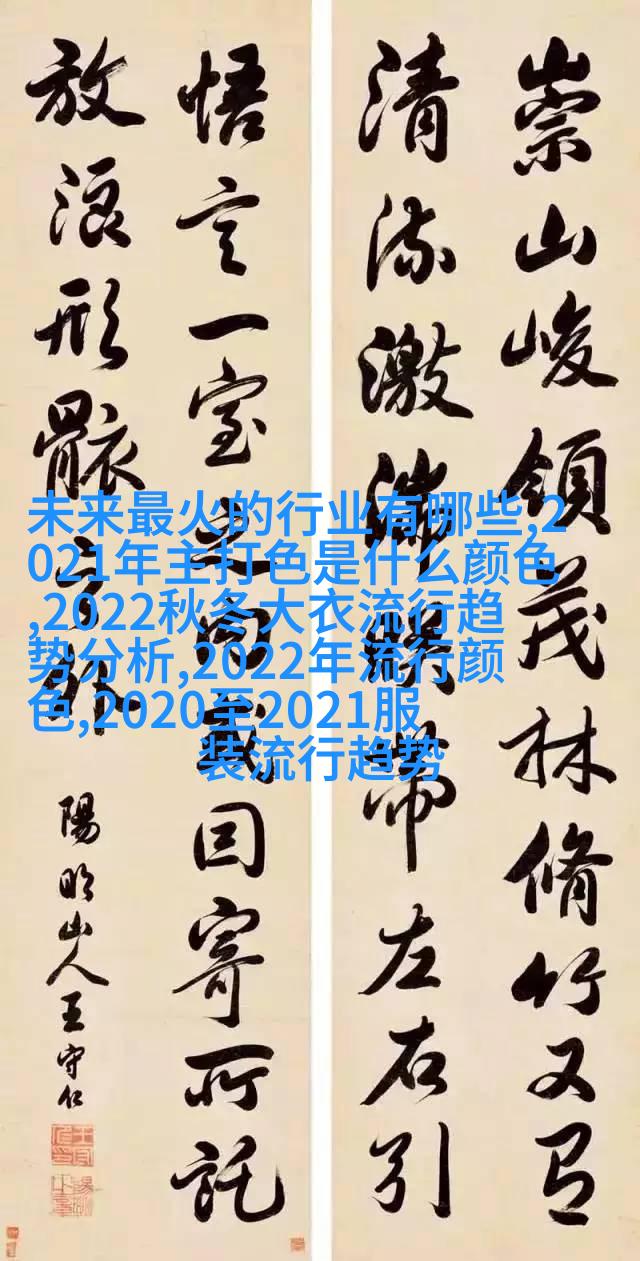 崇山峻領茂林脩竹又有
清流激湍暎帶左右引
悟言一室之內或因寄所託
放浪形骸之外
陽明山人王守仁
未来最火的行业有哪些,2
021年主打色是什么颜色
,2022秋冬大衣流行趋
势分析,2022年流行颜
色,2020至2021服
装流行趋势